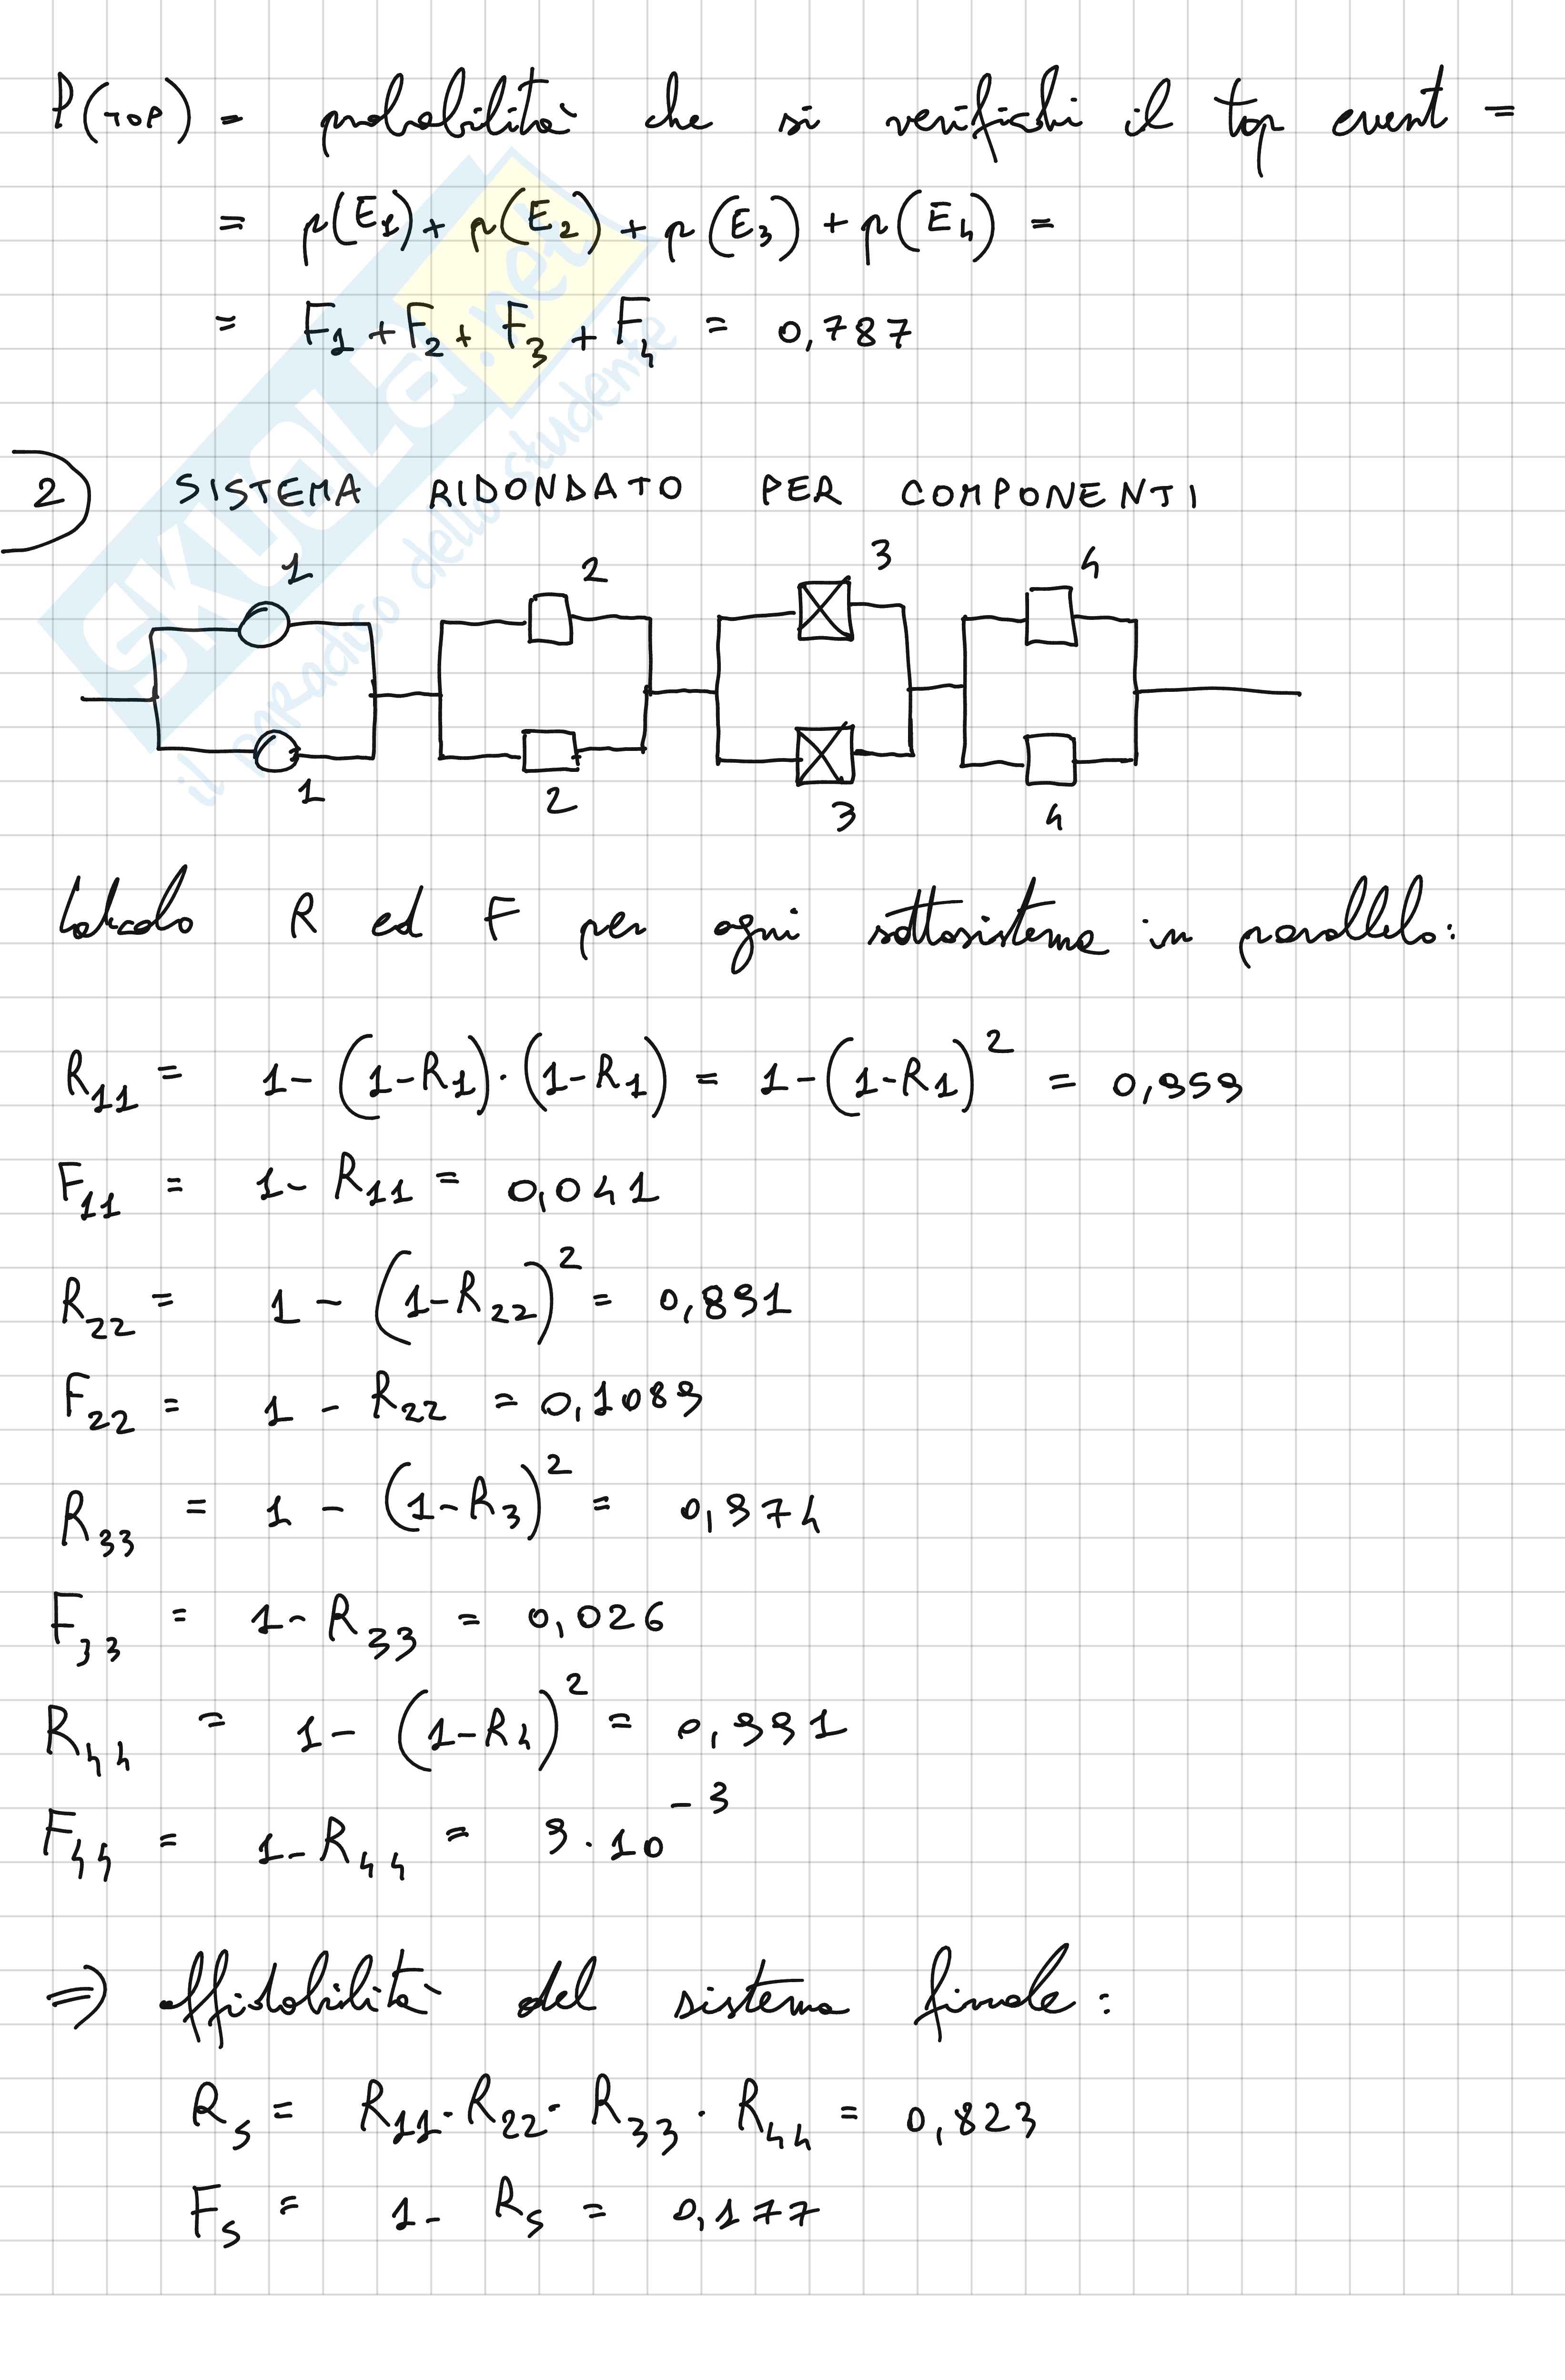 P(TOP) = probabilità che si verifichi il top event =
= p(E1) + p(E2) + p(E3) + p(E4) =
= F1 + F2 + F3 + F4 = 0,787
SKUOLA.net
il paradiso dello studente
2) SISTEMA RIDONDATO PER COMPONENTI
1 2 3 4
1 2 3 4
Calcolo R ed F per ogni sottosistema in parallelo:
R11 = 1-(1-R1)·(1-R1) = 1-(1-R1)² = 0,959
F11 = 1- R11 = 0,041
R22 = 1 - (1-R22)² = 0,891
F22 = 1 - R22 = 0,1089
R33 = 1 - (1-R3)² = 0,974
F33 = 1- R33 = 0,026
R44 = 1- (1-R4)² = 0,991
F44 = 1-R44 = 9·10⁻³
⇒ affidabilità del sistema finale:
Rs = R11·R22·R33·R44 = 0,823
Fs = 1- Rs = 0,177